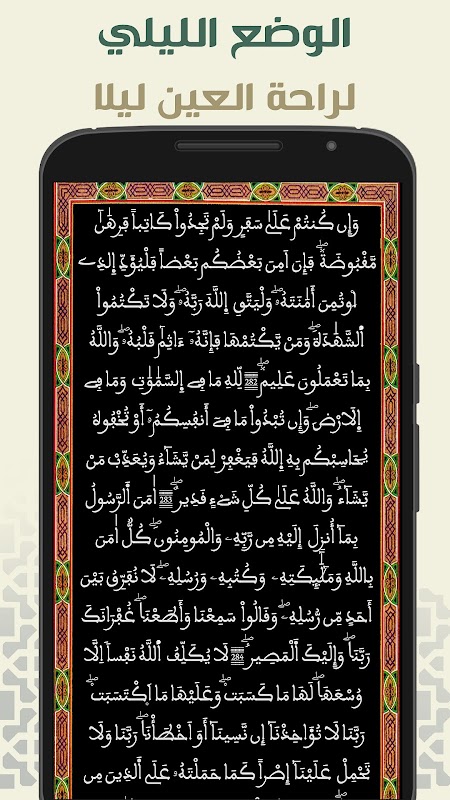 الوضع الليلي
لراحة العين ليلا
وَإِن كُنتُمْ عَلَىٰ سَفَرٍ وَلَمْ تَجِدُواْ كَاتِباً فَرِهَٰنٌ
مَّقْبُوضَةٌۖ فَإِنَ اَمِنَ بَعْضُكُم بَعْضاً فَلْيُؤَدِّ اِلذِے
اِوتُمِنَ أَمَٰنَتَهُۥۖ وَلْيَتَّقِ اِللَّهَ رَبَّهُۥۖ وَلَا تَكْتُمُواْ
اُلشَّهَٰدَةَۖ وَمَنْ يَّكْتُمْهَا فَإِنَّهُۥٓ ءَاثِمٌ قَلْبُهُۥۖ وَاللَّهُ
بِمَا تَعْمَلُونَ عَلِيمٌۖ 282 لِّلهِ مَا فِے اِلسَّمَٰوَٰتِ وَمَا فِے
اِلَارْضِۖ وَإِن تُبْدُواْ مَا فِےٓ أَنفُسِكُمُۥٓ أَوْ تُخْفُوهُ
يُحَاسِبْكُم بِهِ اِللَّهُۖ فَيَغْفِرْ لِمَنْ يَّشَآءُ وَيُعَذِّبْ مَنْ
يَّشَآءُۖ وَاللَّهُ عَلَىٰ كُلِّ شَےْءٍ قَدِيرٌۖ 283 اٰمَنَ اَلرَّسُولُ
بِمَآ أُنزِلَ إِلَيْهِ مِن رَّبِّهِۦ وَالْمُومِنُونَۖ كُلٌّ اٰمَنَ
بِاللَّهِ وَمَلَٰٓئِكَتِهِۦ وَكُتُبِهِۦ وَرُسُلِهِۦۖ لَا نُفَرِّقُ بَيْنَ
أَحَدٍ مِّن رُّسُلِهِۦۖ وَقَالُواْ سَمِعْنَا وَأَطَعْنَاۖ غُفْرَانَكَ
رَبَّنَاۖ وَإِلَيْكَ اَلْمَصِيرُۖ 284 لَا يُكَلِّفُ اُللَّهُ نَفْساً اِلَّا
وُسْعَهَاۖ لَهَا مَا كَسَبَتْۖ وَعَلَيْهَا مَا اَكْتَسَبَتْۖ
رَبَّنَا لَا تُؤَاخِذْنَآ إِن نَّسِينَآ أَوَ اَخْطَأْنَاۖ رَبَّنَا وَلَا
تَحْمِلْ عَلَيْنَآ إِصْراً كَمَا حَمَلْتَهُۥ عَلَى اَلذِينَ مِن